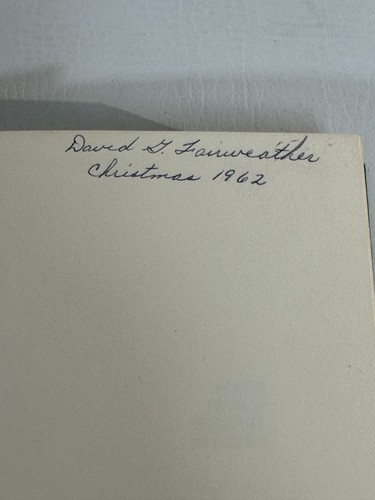 David G. Fairweather
Christmas 1962